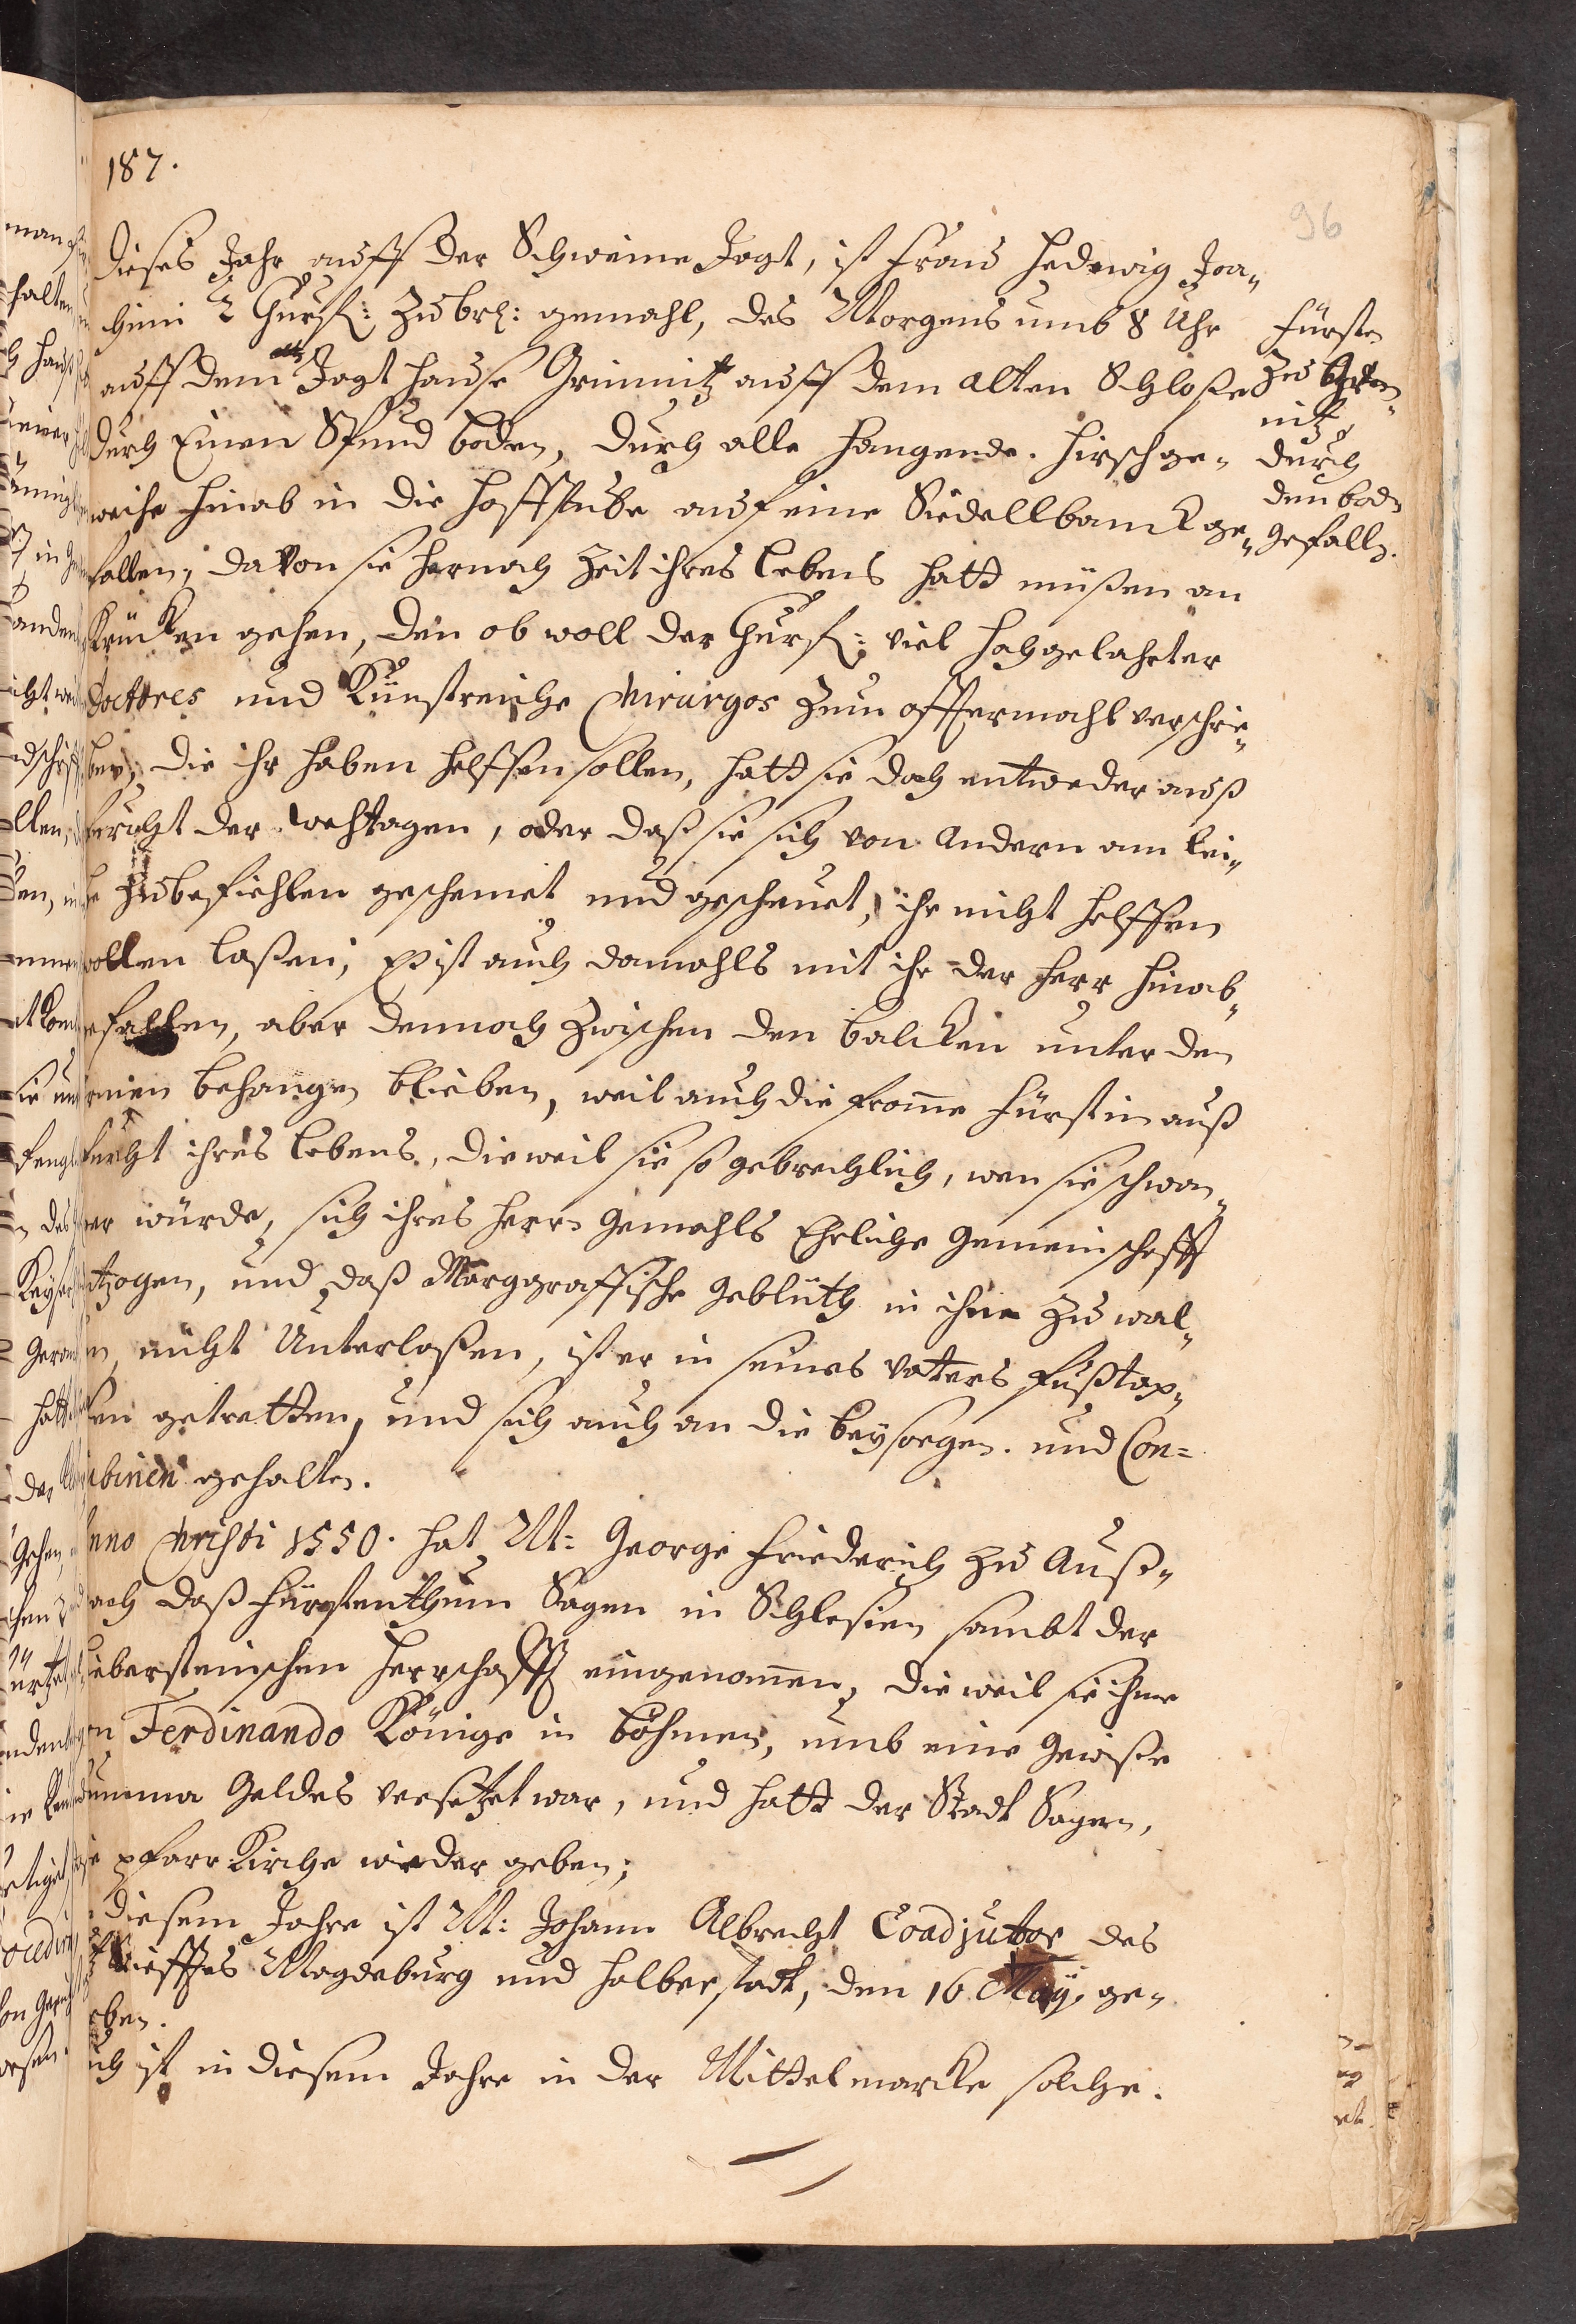 187.
96
Dieses Jahr auff der Schweine Jagt, ist Frau Hedwig Joa-
chimi 2 Churf: zu br: gemahl, des Morgens umb 8 Uhr
auff dem Jagt hause Grimnitz auff dem alten Schloße
durch Einen Spund boden, durch alle hangende. Hirschge-
weihe hinab in die hoffstube auf eine Siedellbanck ge-
fallen, davon sie hernach Zeit ihres lebens hatt müßen an
Krücken gehen, den ob woll der Churf: viel hochgelahrter
Doctores und Künstreiche Chirurgos zum offtermahl verschrie-
ben, die ihr haben helffen sollen, hatt sie doch entweder auß
furcht der wehtagen, oder daß sie sich von andern am lei-
be zubefühlen geschemet und gescheuet, ihr nicht helffen
wollen laßen; Es ist auch damahls mit ihr der Herr hinab-
gefallen, aber dennoch zwischen den balcken unter den
armen behangen blieben, weil auch die frome Fürstin auß
furcht ihres lebens, dieweil sie so gebrechlich, wen sie schwan-
ger würde, sich ihres Herrn gemahls Ehrliche gemeinschafft
entzogen, und daß Marggraffische geblüth in ihme zu wal-
len nicht Unterlaßen, ist er in seines vaters fußtap-
fen getretten, und sich auch an die beysorgen. und Con=
cubinen gehalten.
Anno Christi 1550. hat M: George Friederich zu Anß-
pach daß Fürstenthum Sagen in Schlesien sambt der
Biebersteinischen Herrschafft eingenomen, die weil sie ihme
von Ferdinando Könige in böhmen, umb eine gewiße
Summa Geldes versetzet war, und hatt der Stadt Sagen,
die pfarr Kirche wieder geben;
In diesem Jahre ist M: Johann Albrecht Coadjutor des
Ertz Stifftes Magdeburg und Halberstadt, den 16 May, ge-
storben.
Auch ist in diesem Jahre in der Mittelmarcke solche.
Fürstin
zu Grim-
nitz
durch
den bodn
gefalln.